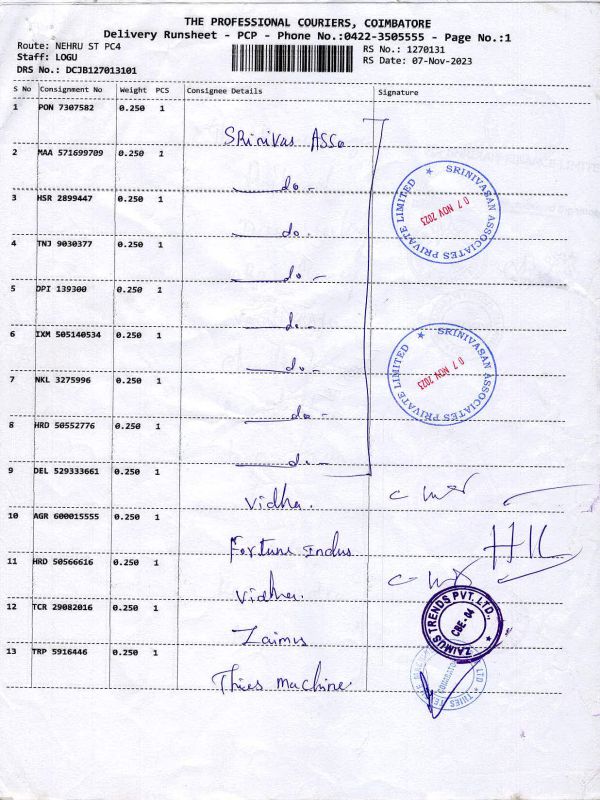 THE PROFESSIONAL COURIERS, COIMBATORE
Delivery Runsheet - PCP - Phone No.:0422-3505555 - Page No.:1
Route: NEHRU ST PC4 RS No.: 1270131
Staff: LOGU RS Date: 07-Nov-2023
DRS No.: DCJB127013101
S No Consignment No Weight PCS Consignee Details Signature
1 PON 7307582 0.250 1
SRinivas Asso
2 MAA 571699709 0.250 1
do -
SRINIVASAN ASSOCIATES PRIVATE LIMITED
07 NOV 2023
3 HSR 2899447 0.250 1
do.
4 TNJ 9030377 0.250 1
do -
5 DPI 139300 0.250 1
do -
6 IXM 505140534 0.250 1
do.
SRINIVASAN ASSOCIATES PRIVATE LIMITED
07 NOV 2023
7 NKL 3275996 0.250 1
do -
8 HRD 50552776 0.250 1
do -
9 DEL 529333661 0.250 1
Vidha.
10 AGR 600015555 0.250 1
Fortune Indus
11 HRD 50566616 0.250 1
Vidha.
12 TCR 29082016 0.250 1
Zaimus
ZAIMUS TRENDS PVT. LTD.,
CBE-04
13 TRP 5916446 0.250 1
Thies Machine
THIES
LTD